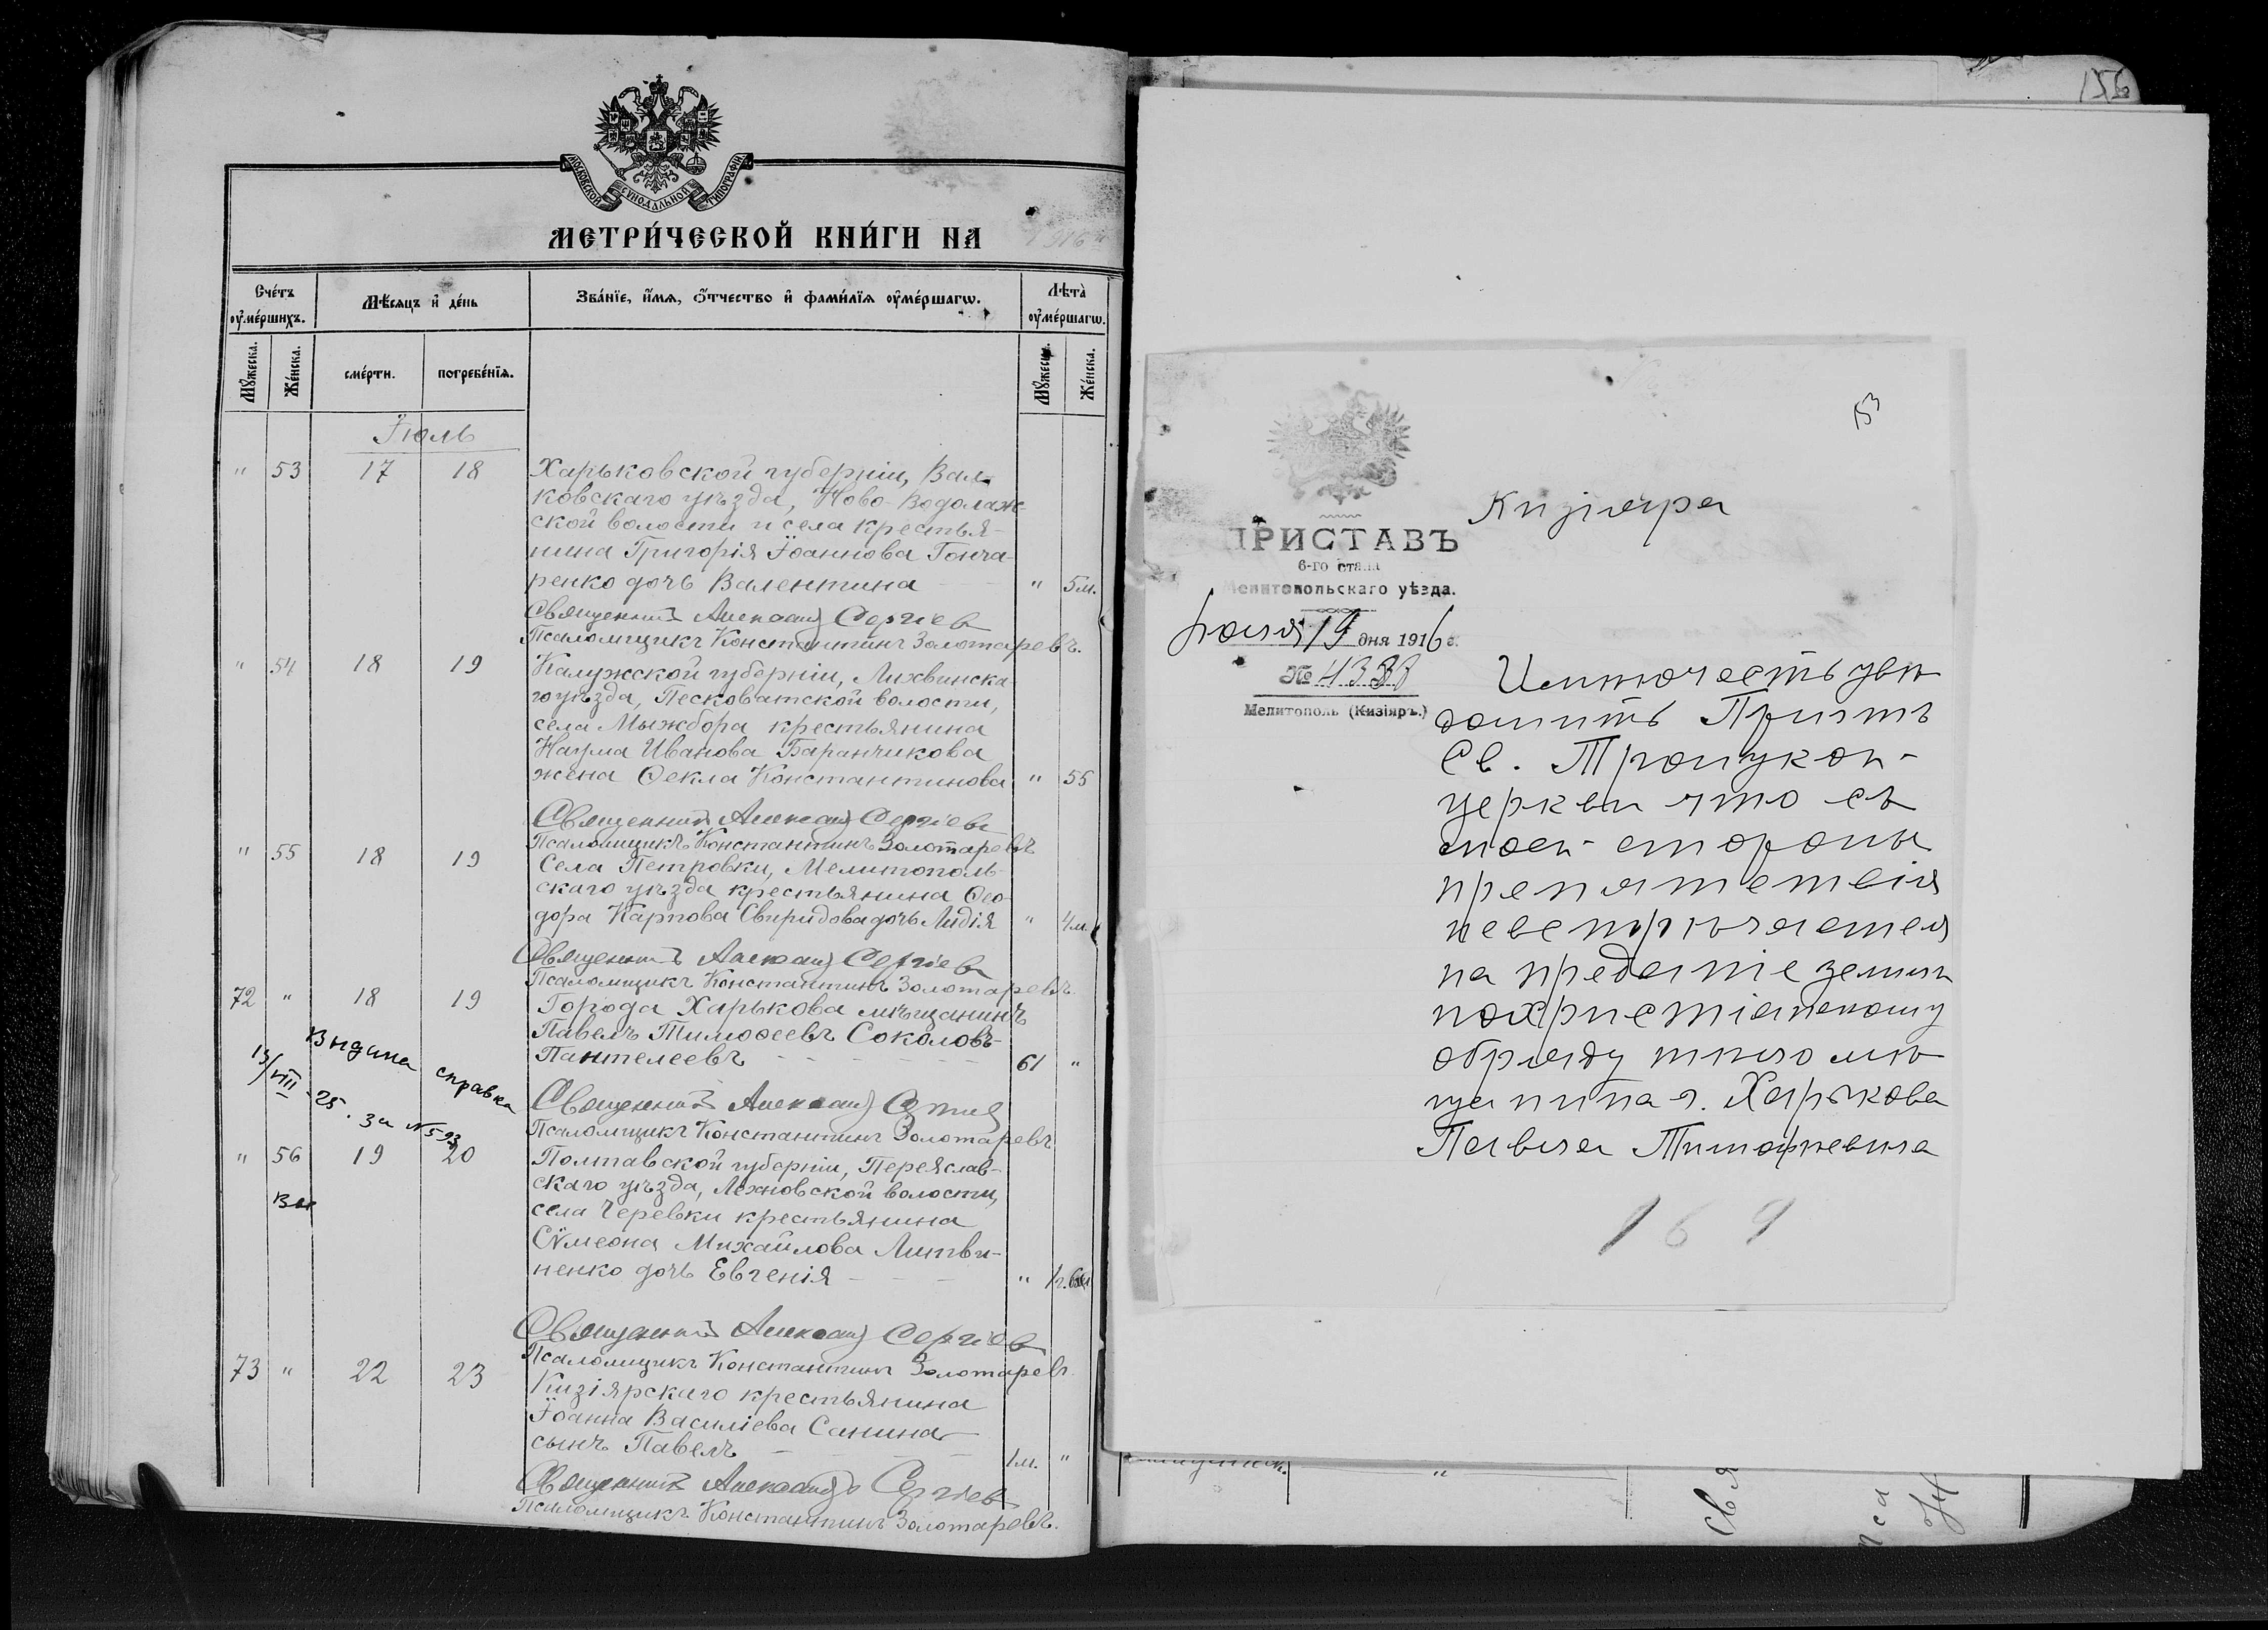 МОСКОВСКОЙ СѴНОДАЛЬНОЙ ТИПОГРАФІИ
МЕТРИ́ЧЕСКОЙ КНИ́ГИ НА 1916
Сче́тъ оу҆ме́ршихъ.
Мѣ́сяцъ и҆ де́нь
Зва́нїе, и҆́мѧ, ѻ҆́тчество и҆ фами́лїѧ оу҆ме́ршагѡ.
Лѣта̀ оу҆ме́ршагѡ.
Мꙋ́жеска.
Же́нска.
сме́рти.
погребе́нїѧ.
Мꙋ́жеска.
Же́нска.
Іюль
" 53 17 18 Харьковской губерніи, Вал-
ковскаго уѣзда, Ново-Водолаж-
ской волости и села крестья-
нина Григорія Іоаннова Гонча-
ренко дочь Валентина " 5 м.
Священникъ Александ Сергіев
Псаломщикъ Константинъ Золотаревъ.
" 54 18 19 Калужской губерніи, Лихвинска-
го уѣзда, Песковатской волости,
села Мыжбора крестьянина
Наума Иванова Баранчикова
жена Ѳекла Константинова " 55
Священникъ Александ Сергіев
Псаломщикъ Константинъ Золотаревъ
" 55 18 19 Села Петровки, Мелитополь-
скаго уѣзда крестьянина Ѳео-
дора Карпова Свиридова дочь Лидія " 4 м.
Священникъ Александ Сергіев
Псаломщикъ Константинъ Золотаревъ.
72 " 18 19 Города Харькова мѣщанинъ
Павелъ Тимоѳеевъ Соколовъ-
Пантелеевъ 61 "
Выдана справка
13/VIII-25. за №593
Священникъ Александ
Псаломщикъ Константинъ Золотаревъ
" 56 19 20 Полтавской губерніи, Переяслав-
скаго уѣзда, Лехновской волости,
села Черевки крестьянина
Сѷмеона Михайлова Литви-
ненко дочь Евгенія " 1 г.
Священникъ Александ Сергіев
Псаломщикъ Константинъ Золотаревъ
73 " 22 23 Кизіярскаго крестьянина
Іоанна Василіева Санина
сынъ Павелъ 1 м. "
Священникъ Александъ Сергіев
Псаломщикъ Константинъ Золотаревъ.
156
153
ПРИСТАВЪ
6-го стана
Мелитопольскаго уѣзда.
19 дня 1916 г.
№ 4383
Мелитополь (Кизіяръ.)
Кизіяра
Имѣю честь увѣ
домить Причтъ
Св. Троицкой
церкви что съ
моей стороны
препятствія
невстрѣчается
на преданіе землѣ
похристіанскому
обряду тѣло мѣ
щанина г. Харькова
Павла Тимофѣевича
169